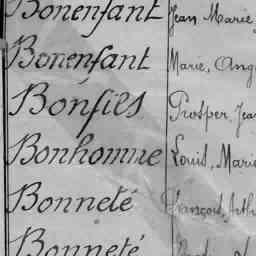 Bonenfant Jean Marie,
Bonenfant Marie, Ang
Bonfils Prosper, Jean
Bonhomme Louis, Marie
Bonneté François, Arth
Bonneté